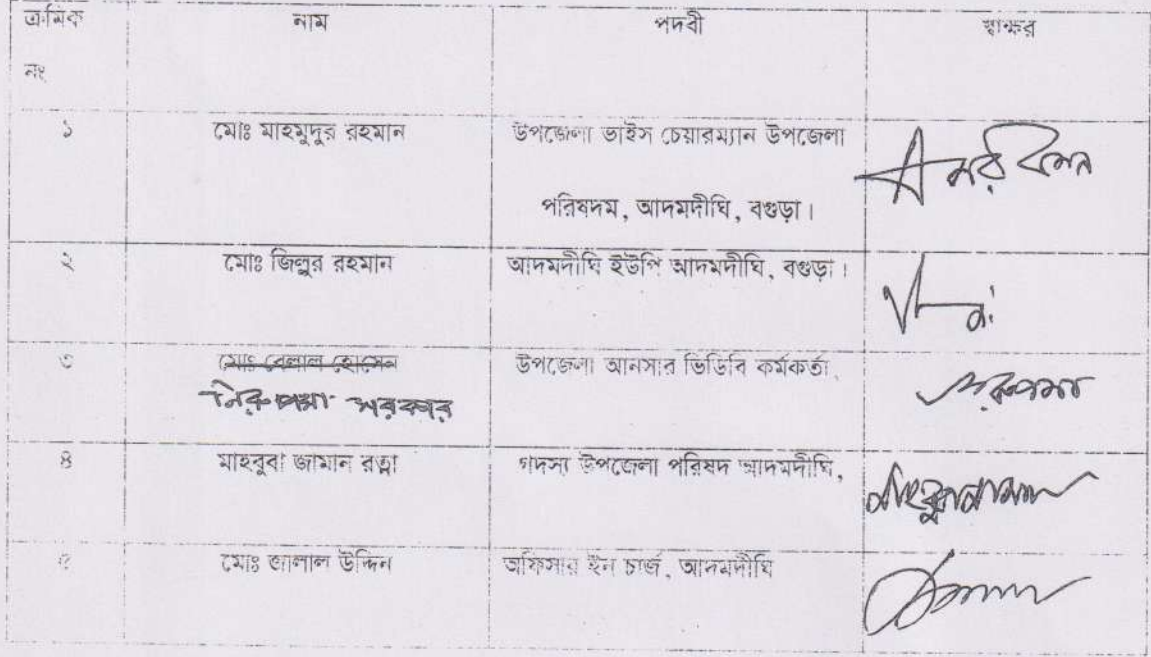 ক্রমিক নাম পদবী স্বাক্ষর
নং
১ মোঃ মাহমুদুর রহমান উপজেলা ভাইস চেয়ারম্যান উপজেলা
পরিষদম, আদমদীঘি, বগুড়া।
২ মোঃ জিলুর রহমান আদমদীঘি ইউপি আদমদীঘি, বগুড়া।
৩ মোঃ বেলাল হোসেন উপজেলা আনসার ভিডিবি কর্মকর্তা,
নিরুপমা সরকার
৪ মাহবুবা জামান রত্না সদস্য উপজেলা পরিষদ আদমদীঘি,
৫ মোঃ জালাল উদ্দিন অফিসার ইন চার্জ, আদমদীঘি